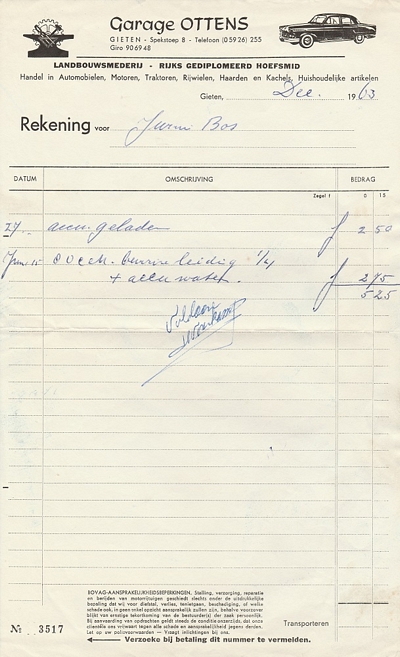 Garage OTTENS
GIETEN - Spekstoep 8 - Telefoon (05926) 255
Giro 906948
LANDBOUWSMEDERIJ - RIJKS GEDIPLOMEERD HOEFSMID
Handel in Automobielen, Motoren, Traktoren, Rijwielen, Haarden en Kachels, Huishoudelijke artikelen
Gieten, Dec. 1963
Rekening voor Bos
DATUM OMSCHRIJVING BEDRAG
Zegel f 0 15
27 accu geladen f 2 50
15 leidig 1/4
+ accu water. f 2 75
5 25
Voldaan
BOVAG-AANSPRAKELIJKHEIDSBEPERKINGEN. Stalling, verzorging, reparatie
en berijden van motorrijtuigen geschiedt slechts onder de uitdrukkelijke
bepaling dat wij voor diefstal, verlies, tenietgaan, beschadiging, of welke
schade ook, in geen enkel opzicht aansprakelijk zullen zijn, behalve voorzover
blijkt van ernstige tekortkoming van de bestuurder(s) der zaak persoonlijk.
Bij aanvaarding van opdrachten geldt steeds de conditie onzerzijds, dat onze
cliëntèle ons vrijwaart tegen alle schade en aansprakelijkheid jegens derden.
Let op uw polisvoorwaarden — Vraagt inlichtingen bij ons.
Transporteren
№ 3517
Verzoeke bij betaling dit nummer te vermelden.